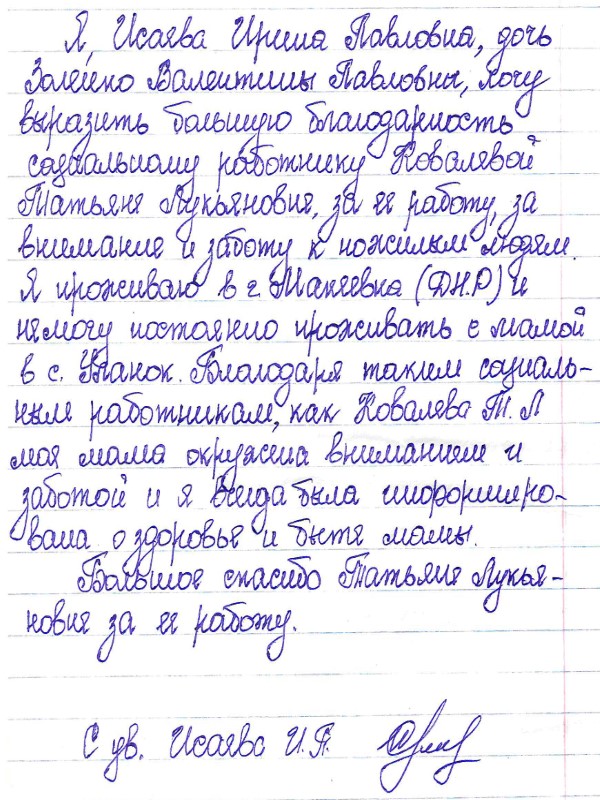 Я, Исаева Ирина Павловна, дочь
Золейко Валентины Павловны, хочу
выразить большую благодарность
социальному работнику Ковалевой
Татьяне Лукьяновне, за ее работу, за
внимание и заботу к пожилым людям.
Я проживаю в г. Макеевка (ДНР) и
немогу постоянно проживать с мамой
в с. Уланок. Благодаря таким социаль-
ным работникам, как Ковалева Т. Л
моя мама окружена вниманием и
заботой и я всегда была информиро-
вана о здоровье и быте мамы.
Большое спасибо Татьяне Лукья-
новне за ее работу.
С ув. Исаева И.П.